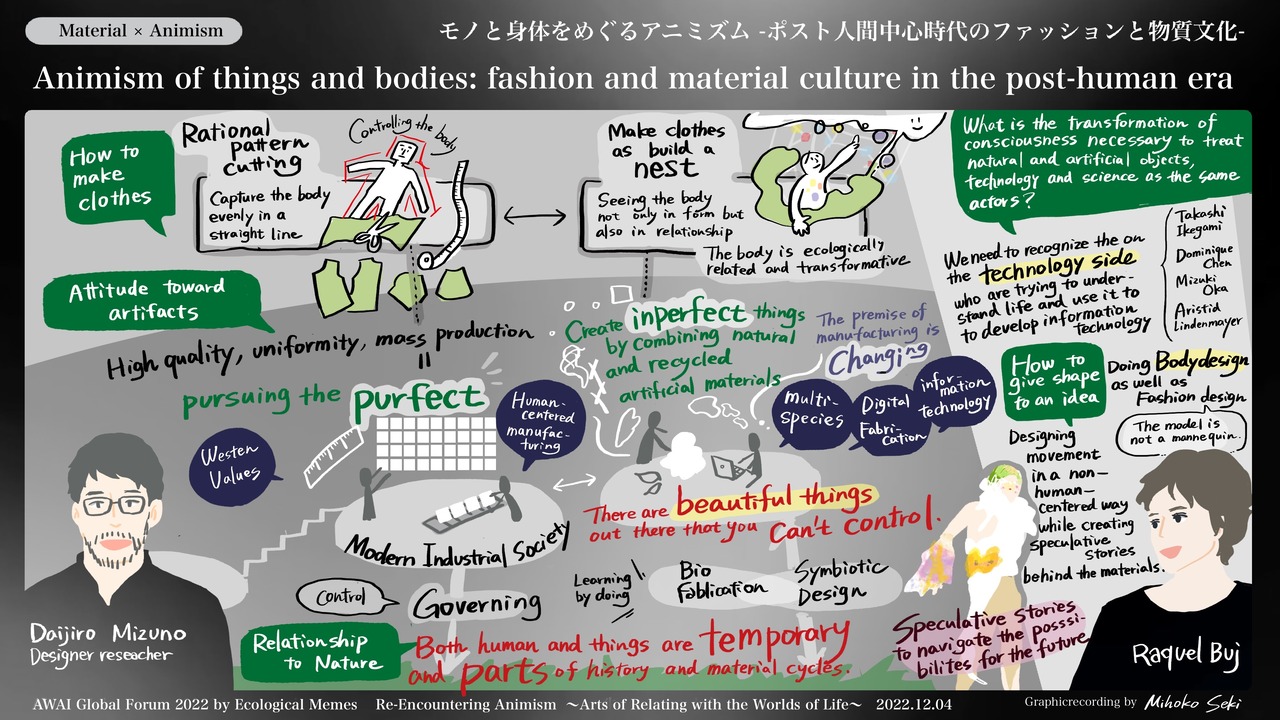 Material × Animism
モノと身体をめぐるアニミズム -ポスト人間中心時代のファッションと物質文化-
Animism of things and bodies: fashion and material culture in the post-human era
How to
make
clothes
Rational
pattern
cutting
Controlling the body
Capture the body
evenly in a
straight line
Make clothes
as build a
nest
Seeing the body
not only in form but
also in relationship
The body is ecologically
related and transformative
What is the transformation of
consciousness necessary to treat
natural and artificial objects,
technology and science as the same
actors?
We need to recognize the on
the technology side
who are trying to under-
stand life and use it to
to develop information
Technology
Takashi
Ikegami
Dominique
Chen
Mizuki
Oka
Aristid
Lindenmayer
Attitude toward
artifacts
High quality, uniformity, mass production
=
pursuing the purfect
Westen
Values
Human-
centered
manufac-
turing
Create inperfect things
by combining natural
and recycled
artificial materials
The premise of
manufacturing is
Changing
multi-
species
Digital
Fabri-
cation
infor-
mation
technology
How to
give shape
to an idea
Doing Bodydesign
as well as
Fashion design
The model is
not a mannequin.
Designing
movement
in a non-
human-
centered way
while creating
speculative
stories
behind the materials.
Modern Industrial Society
There are beautiful things
out there that you can't control.
Control
Governing
Learning
by doing
Bio
Fablication
Symbiotic
Design
Relationship
to Nature
Both human and things are temporary
and parts of history and material cycles.
Speculative Stories
to navigate the posssi-
bilites for the future
Daijiro Mizuno
Designer reseacher
Raquel Buj
AWAI Global Forum 2022 by Ecological Memes Re-Encountering Animism ～Arts of Relating with the Worlds of Life～ 2022.12.04
Graphicrecording by Mihoko Seki